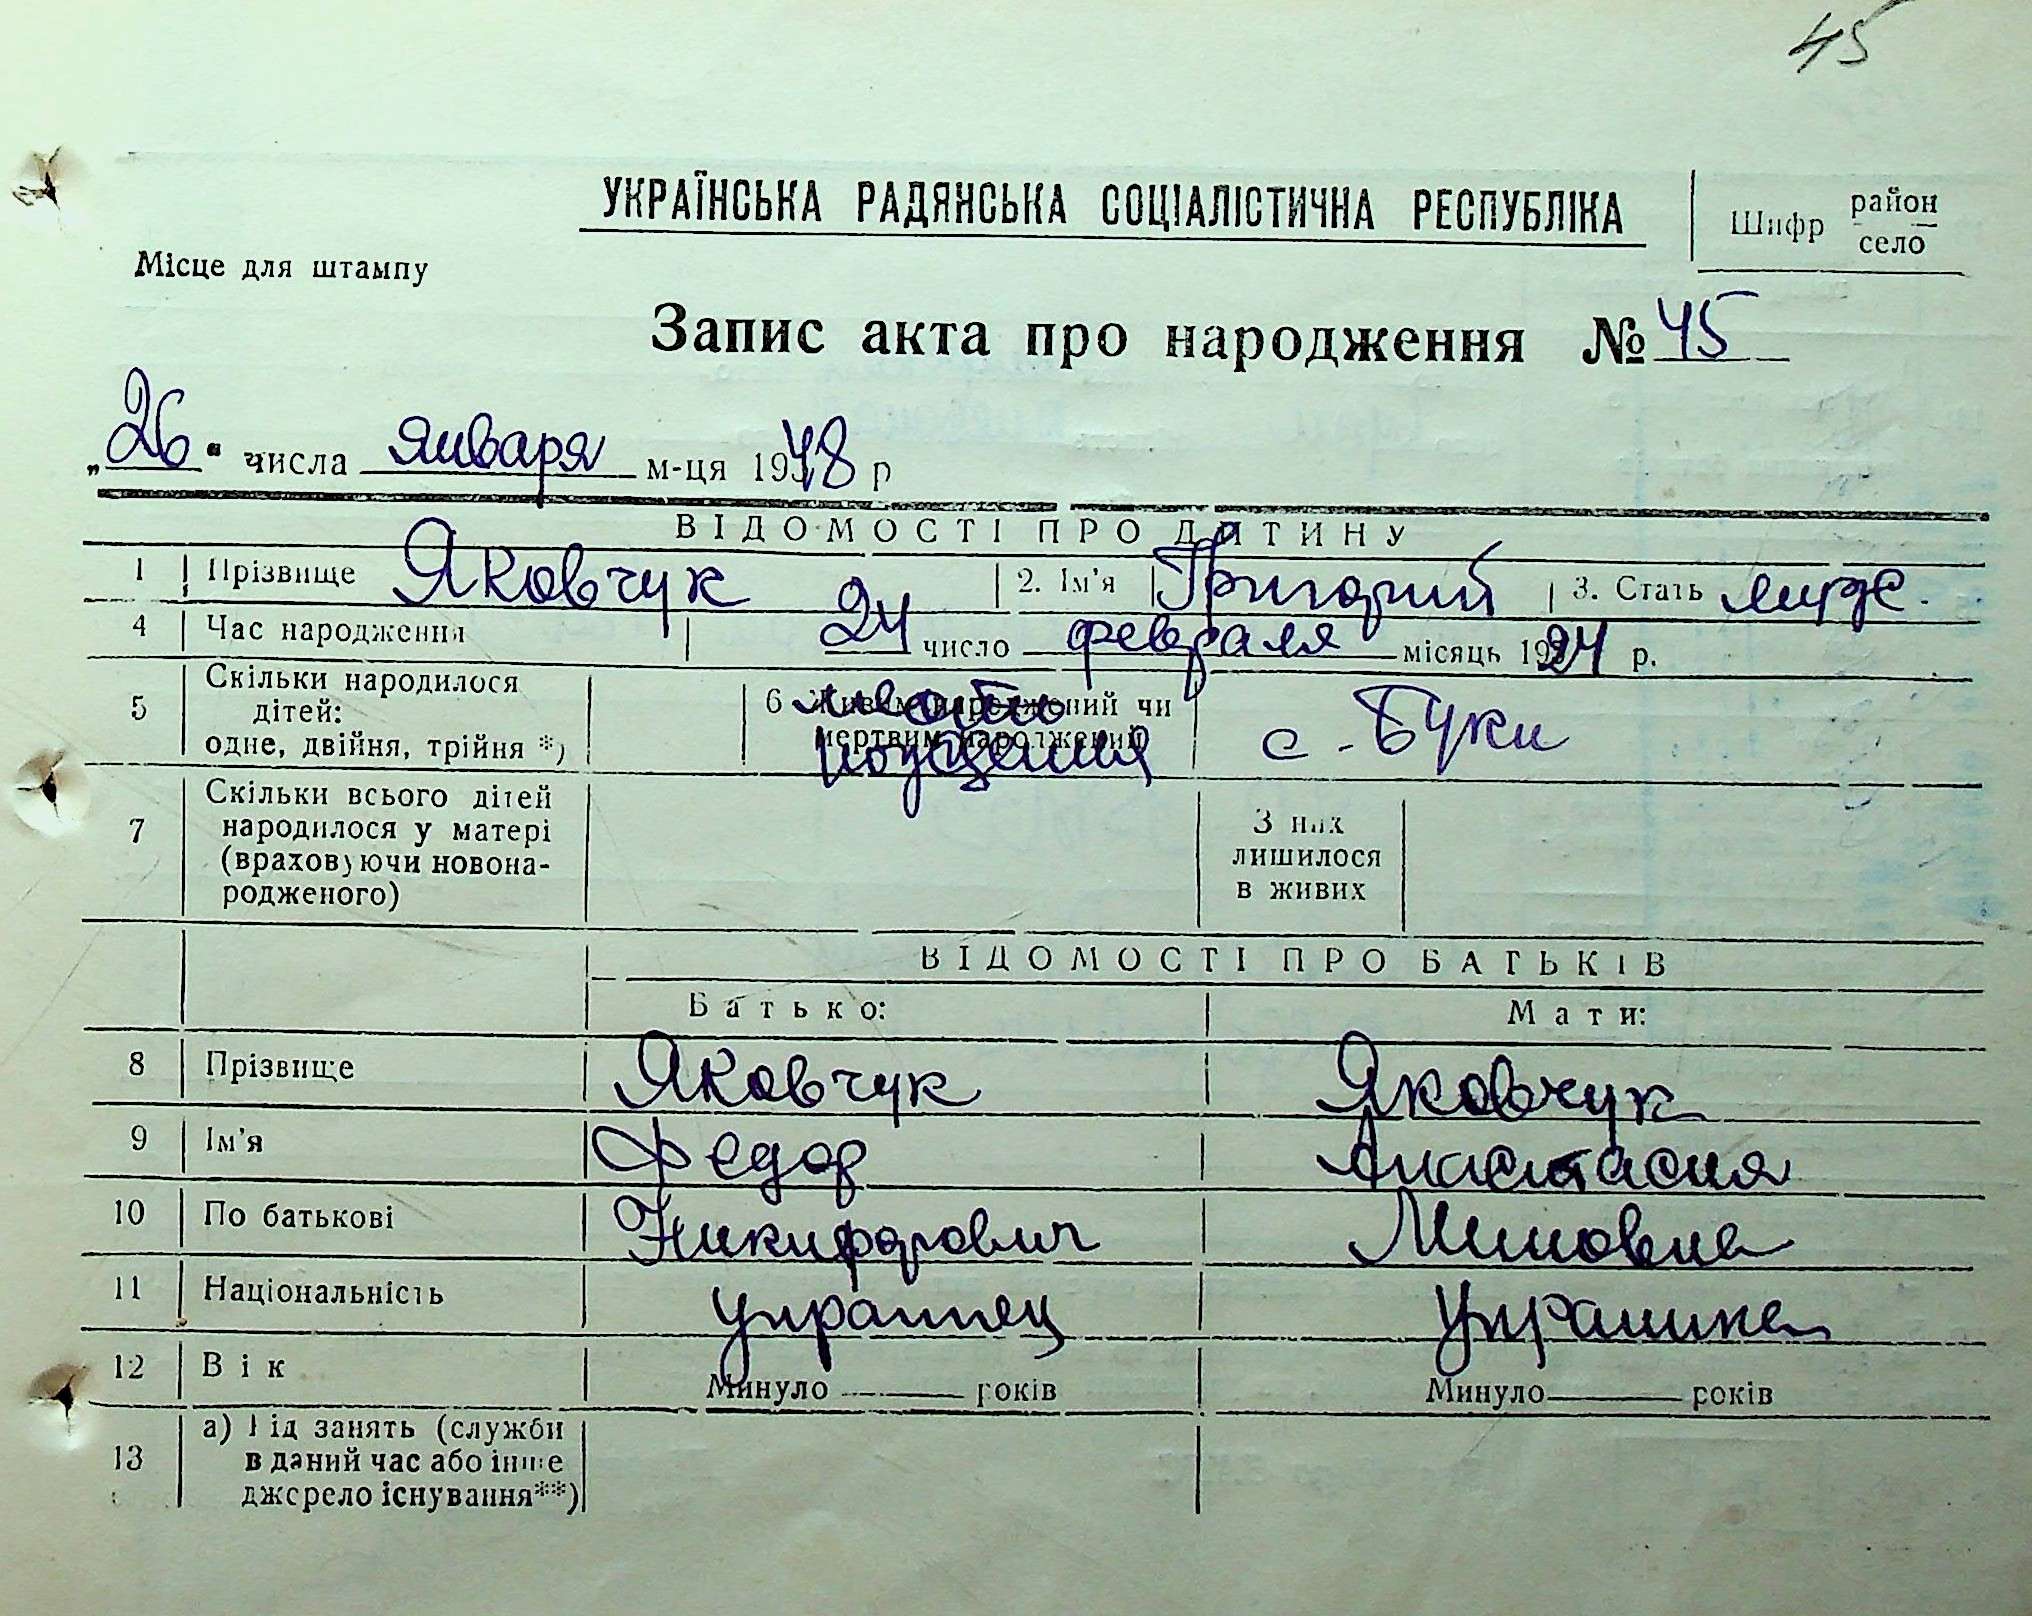 45
УКРАЇНСЬКА РАДЯНСЬКА СОЦІАЛІСТИЧНА РЕСПУБЛІКА
Шифр район село
Місце для штампу
Запис акта про народження № 45
„26“ числа января м-ця 1948 р
ВІДОМОСТІ ПРО ДИТИНУ
1 Прізвище Яковчук 2. Ім'я Григорий 3. Стать муж.
4 Час народження 24 число февраля місяць 1924 р.
5 Скільки народилося дітей: одне, двійня, трійня *) 6 Живим народжений чи мертвим народжений место рождения с. Буки
7 Скільки всього дітей народилося у матері (враховуючи новонародженого) З них лишилося в живих
ВІДОМОСТІ ПРО БАТЬКІВ
Батько: Мати:
8 Прізвище Яковчук Яковчук
9 Ім'я Федор Анастасия
10 По батькові Никифорович Миновна
11 Національність украинец украинка
12 Вік Минуло років Минуло років
13 а) Рід занять (служби
в даний час або інше
джерело існування**)